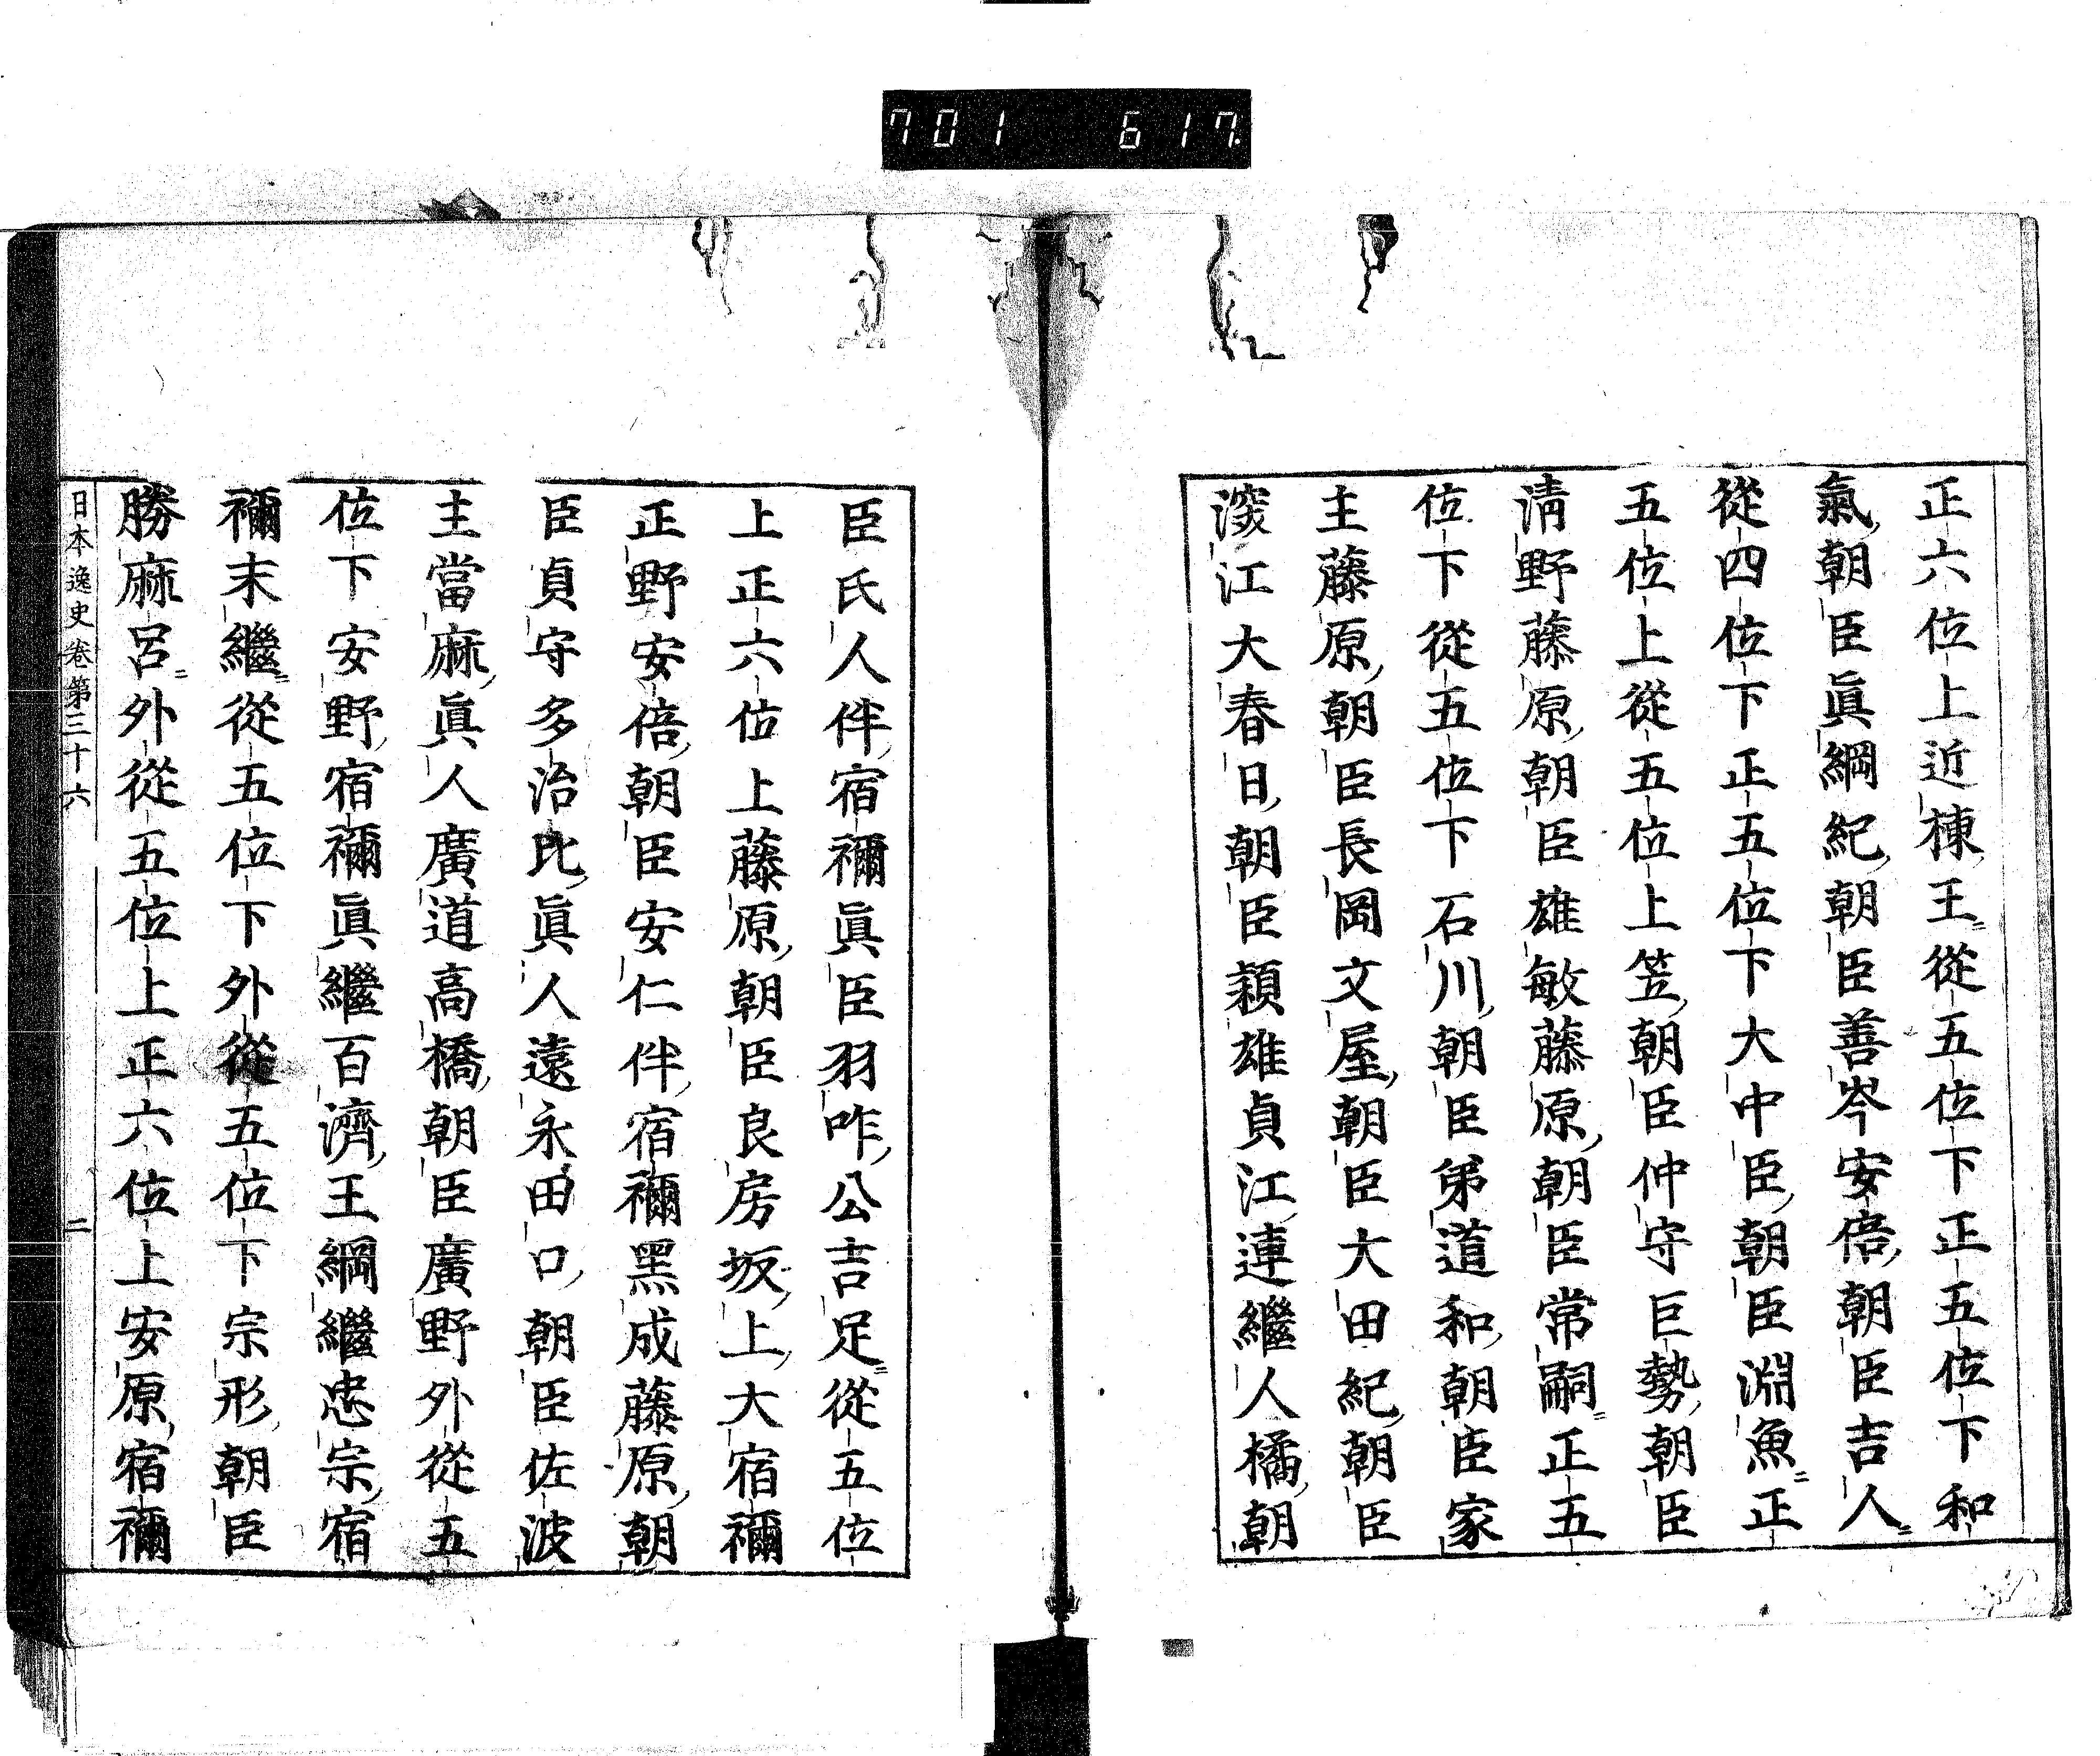 701 617
正六位上近棟王從五位下正五位下和
氣朝臣眞綱紀朝臣善岑安倍朝臣吉人
從四位下正五位下大中臣朝臣淵魚正
五位上從五位上笠朝臣仲守巨勢朝臣
淸野藤原朝臣雄敏藤原朝臣常嗣正五
位下從五位下石川朝臣弟道和朝臣家
主藤原朝臣長岡文屋朝臣大田紀朝臣
深江大春日朝臣穎雄貞江連繼人橘朝
臣氏人伴宿禰眞臣羽咋公吉足從五位
上正六位上藤原朝臣良房坂上大宿禰
正野安倍朝臣安仁伴宿禰黑成藤原朝
臣貞守多治比眞人遠永田口朝臣佐波
主當麻眞人廣道高橋朝臣廣野外從五
位下安野宿禰眞繼百濟王綱繼忠宗宿
禰末繼從五位下外從五位下宗形朝臣
勝麻呂外從五位上正六位上安原宿禰
日本逸史卷第三十六 二